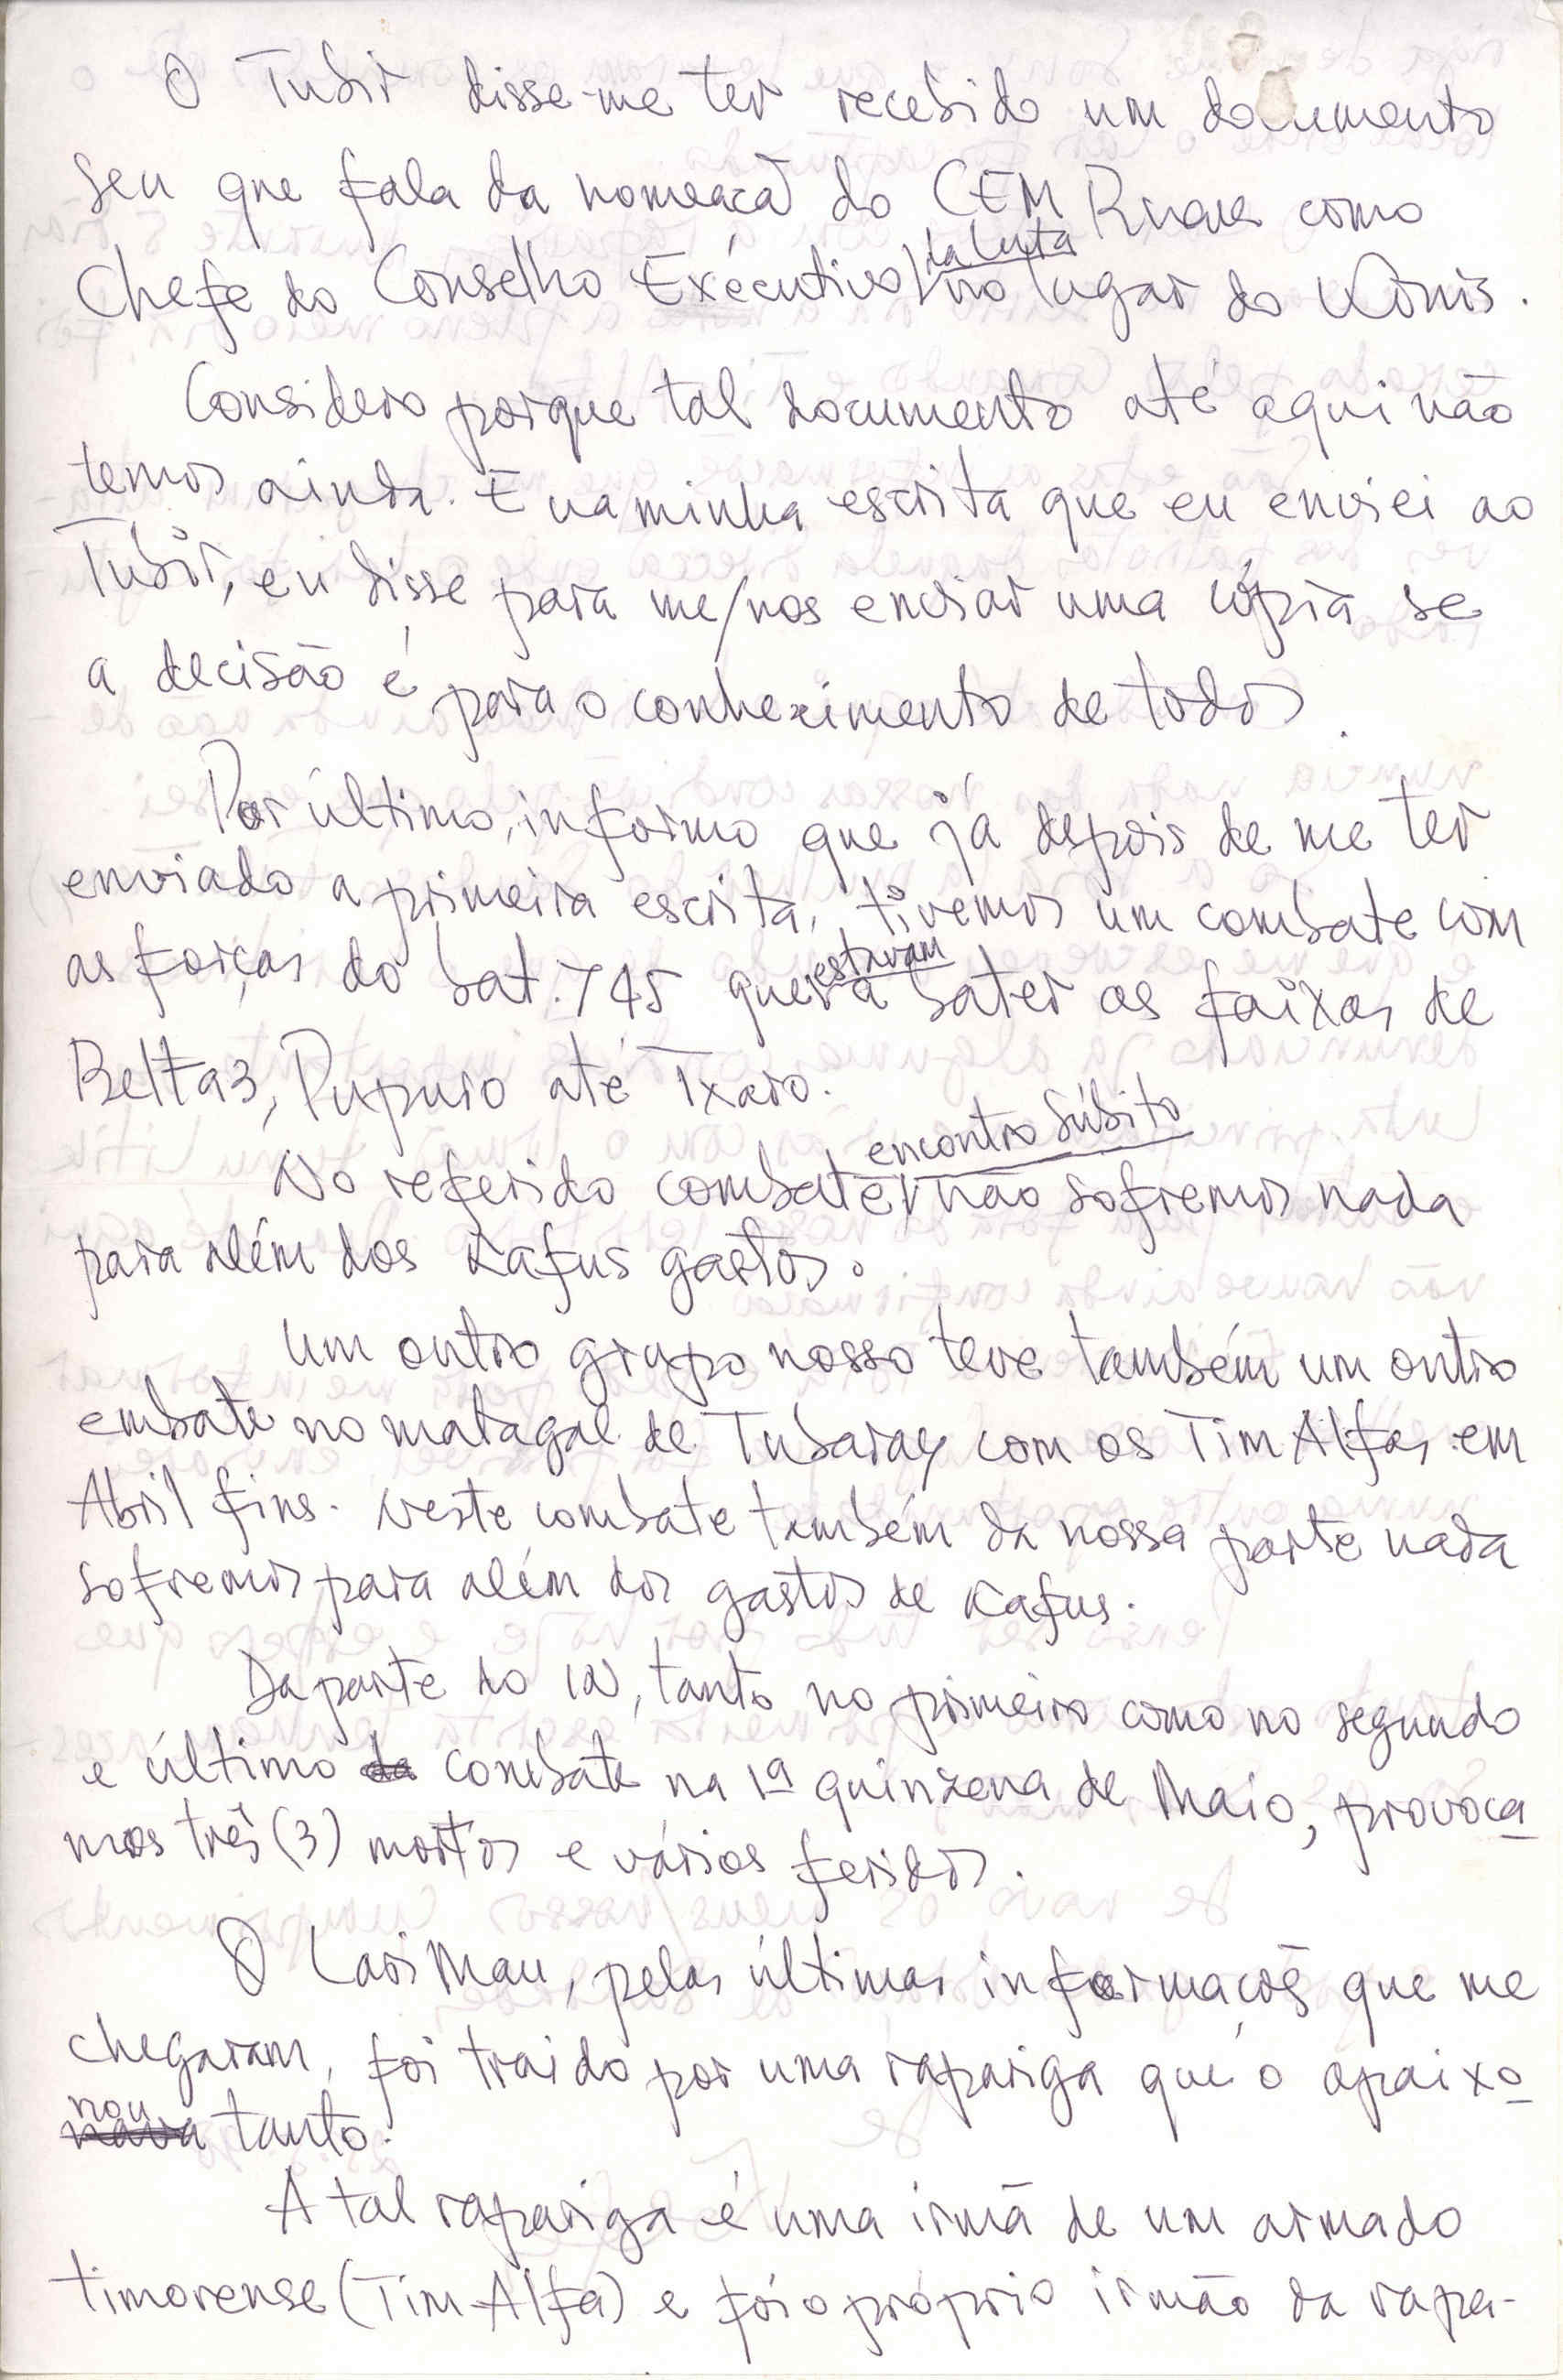 O Tubir disse-me ter recebido um documento
seu que fala da nomeacã do CEM Ruak como
Chefe do Conselho Exécutivo da luta no lugar do Konis.
Considero porque tal documento até aqui não
temos ainda. E na minha escrita que eu enviei ao
Tubir, eu disse para me/nos enviar uma cópia se
a decisão é para o conhecimento de todos.
Por último, informo que já depois de me ter
enviado a primeira escrita, tivemos um combate com
as forças do bat. 745 que estavam a bater as faixas de
Belta3, Pupuro até Txaro.
No referido combate encontro súbito não sofremos nada
para além dos Kafus gastos.
Um outro grupo nosso teve também um outro
embate no matagal de Tubaray com os Tim Alfas em
Abril fins. Neste combate também da nossa parte nada
sofremos para além dos gastos de Kafus.
Da parte do IN, tanto no primeiro como no segundo
e último combate na 1ª quinzena de Maio, provoca
mos três (3) mortos e vários feridos.
O Lari Mau, pelas últimas informacões que me
chegaram, foi traido por uma rapariga que o apaixo
nou tanto.
A tal rapariga é uma irmã de um armado
timorense (Tim Alfa) e foi o próprio irmão da rapa-